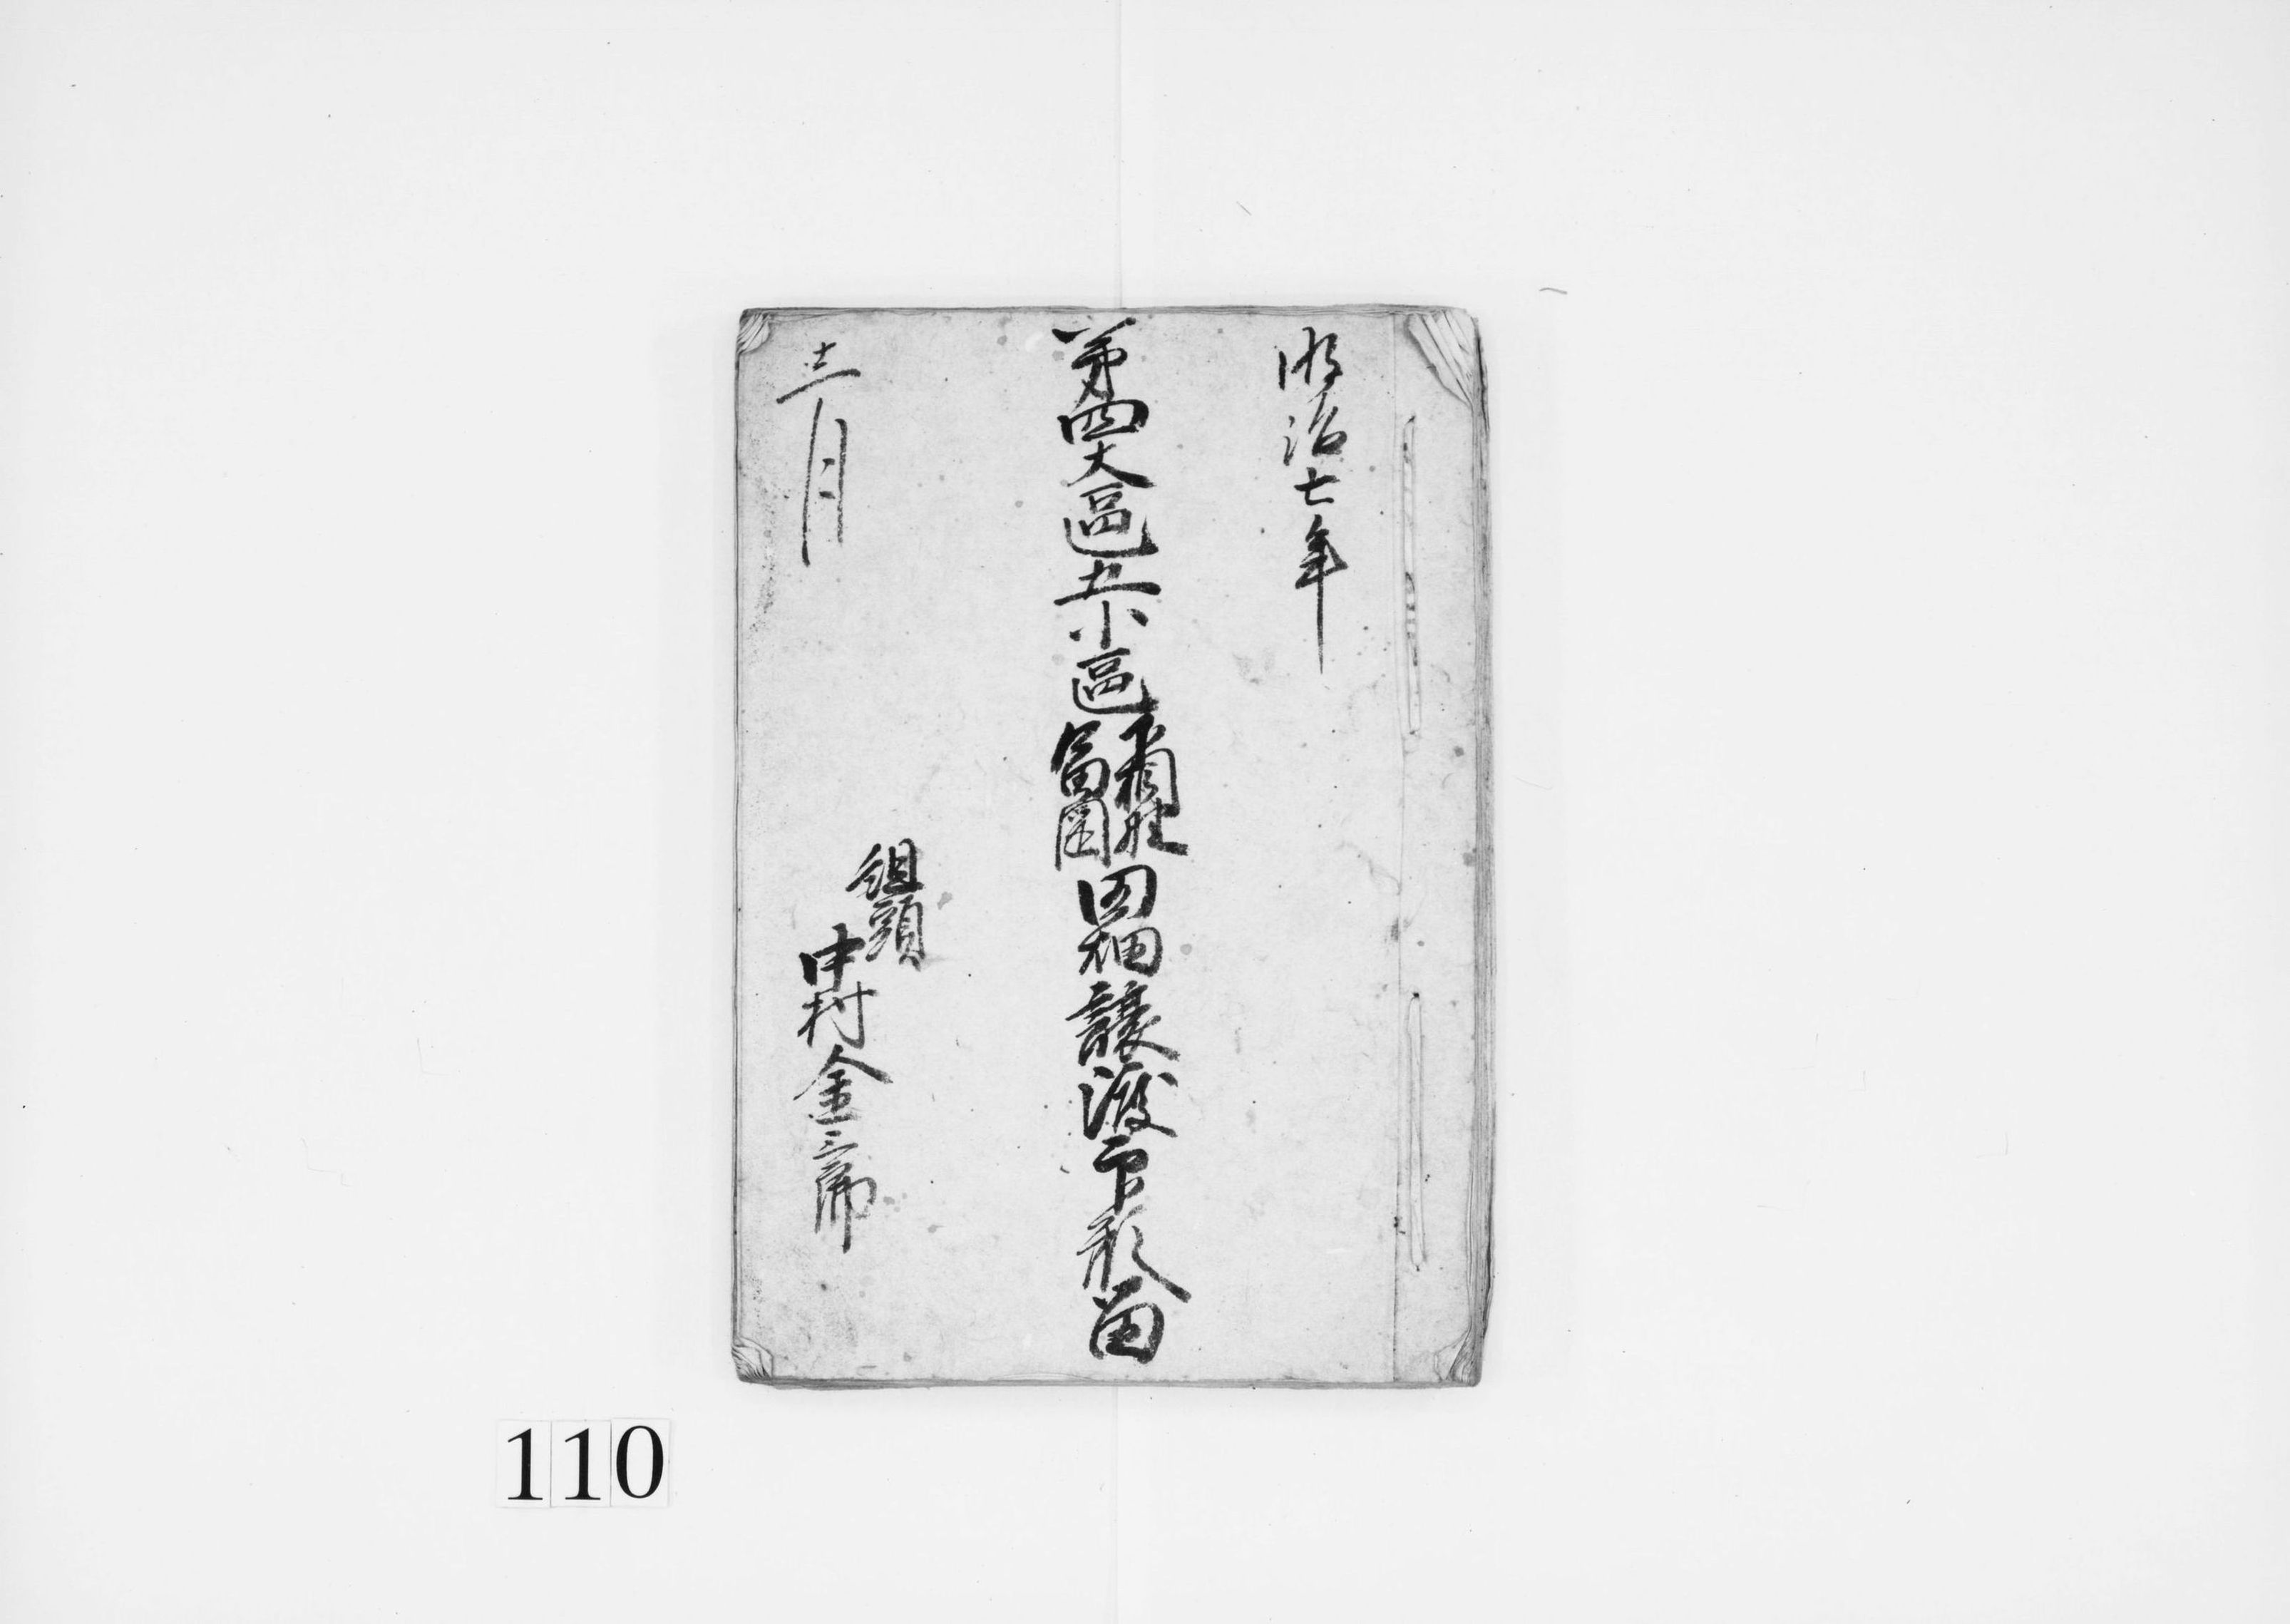 明治七年
第四大區五小區
富岡
田畑讓渡印形留
十二月
組頭
中村金三郎
110